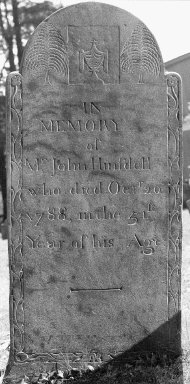 IN
MEMORY
of
Mr John Hunsdell
who died Octr 20
1788, in the 51st
Year of his Age